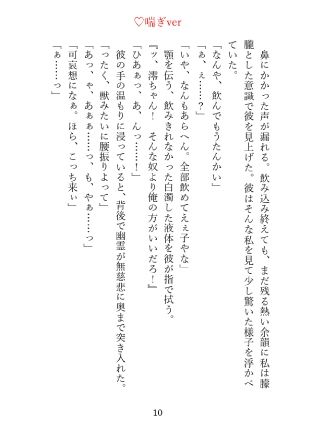 ♡喘ぎver
鼻にかかった声が漏れる。飲み込み終えても、まだ残る熱い余韻に私は朦
朧とした意識で彼を見上げた。彼はそんな私を見て少し驚いた様子を浮かべ
ていた。
「なんや、飲んでもうたんかい」
「ぁ、ぇ……？」
「いや、なんもあらへん。全部飲めてえぇ子やな」
顎を伝う、飲みきれなかった白濁した液体を彼が指で拭う。
『ッ、澪ちゃん！　そんな奴より俺の方がいいだろ！』
「ひあぁっ、あ、んっ……！」
彼の手の温もりに浸っていると、背後で幽霊が無慈悲に奥まで突き入れた。
「ったく、獣みたいに腰振りよって」
「あっ、ゃ、あぁぁ……っ、も、やぁ……っ」
「可哀想になぁ。ほら、こっち来ぃ」
「ぁ……っ」
10